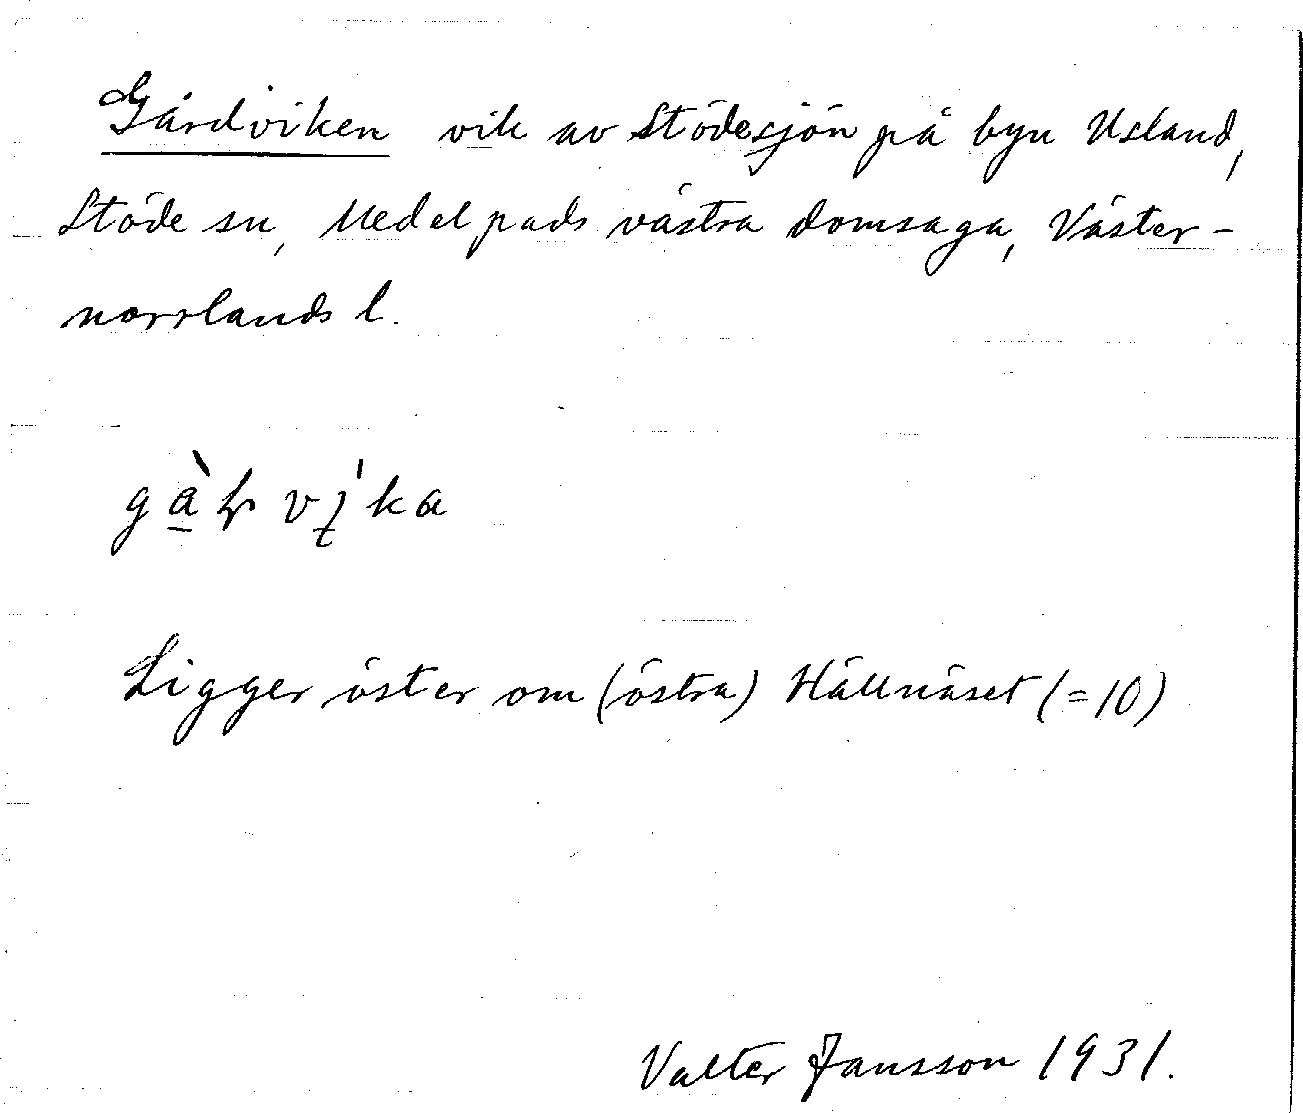 Gårdviken vik av Stödesjön på byn Usland,
Stöde sn, Medelpads västra domsaga, Väster-
norrlands l.
Ligger öster om (östra) Hällnäset (=10)
Valter Jansson 1931.